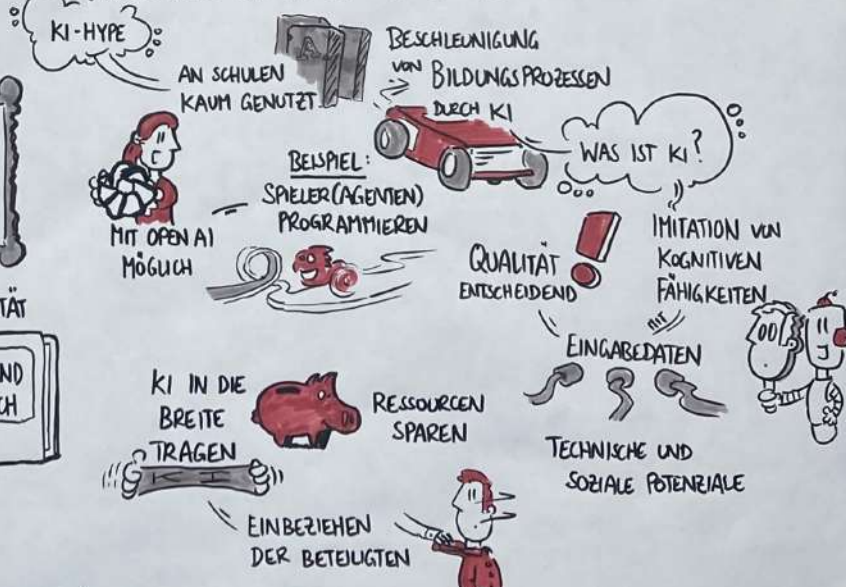 KI-HYPE
AN SCHULEN
KAUM GENUTZT
A
BESCHLEUNIGUNG
VON BILDUNGSPROZESSEN
DURCH KI
WAS IST KI?
BEISPIEL:
SPIELER(AGENTEN)
PROGRAMMIEREN
MIT OPEN AI
MÖGLICH
QUALITÄT
ENTSCHEIDEND
IMITATION VON
KOGNITIVEN
FÄHIGKEITEN
MIT
EINGABEDATEN
TÄT
ND
CH
KI IN DIE
BREITE
TRAGEN
KI
RESSOURCEN
SPAREN
TECHNISCHE UND
SOZIALE POTENZIALE
EINBEZIEHEN
DER BETEILIGTEN